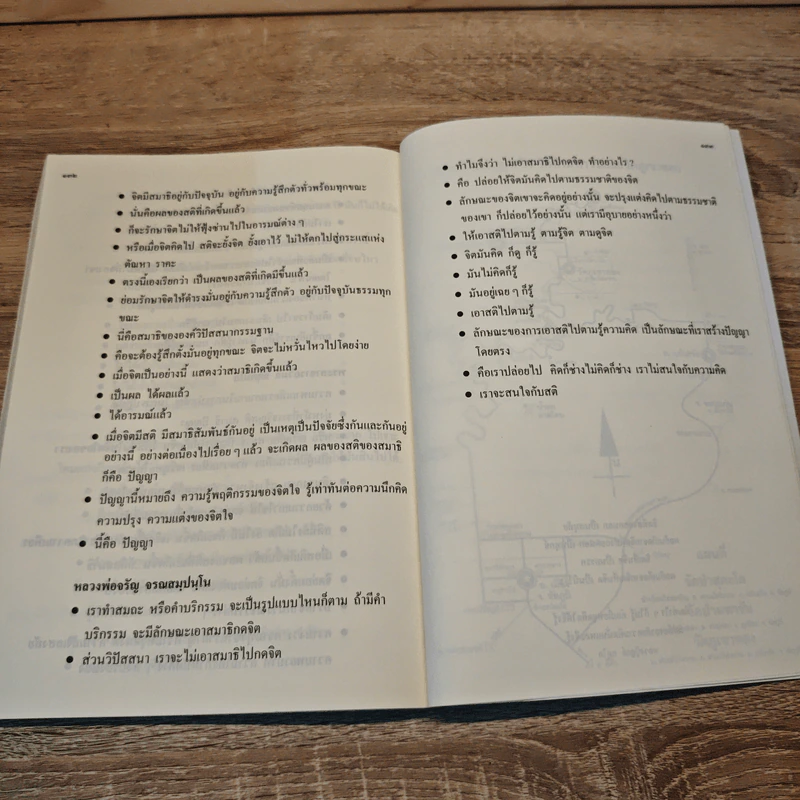 ๑๓๒
• จิตมีสมาธิอยู่กับปัจจุบัน อยู่กับความรู้สึกตัวทั่วพร้อมทุกขณะ
• นั่นคือผลของสติที่เกิดขึ้นแล้ว
• ก็จะรักษาจิตไม่ให้ฟุ้งซ่านไปในอารมณ์ต่าง ๆ
• หรือเมื่อจิตคิดไป สติจะยั้งจิต ยั้งเอาไว้ ไม่ให้ตกไปสู่กระแสแห่ง
ตัณหา ราคะ
• ตรงนี้เองเรียกว่า เป็นผลของสติที่เกิดมีขึ้นแล้ว
• ย่อมรักษาจิตให้ดำรงมั่นอยู่กับความรู้สึกตัว อยู่กับปัจจุบันธรรมทุก
ขณะ
• นี่คือสมาธิขององค์วิปัสสนากรรมฐาน
• คือจะต้องรู้สึกตั้งมั่นอยู่ทุกขณะ จิตจะไม่หวั่นไหวไปโดยง่าย
• เมื่อจิตเป็นอย่างนี้ แสดงว่าสมาธิเกิดขึ้นแล้ว
• เป็นผล ได้ผลแล้ว
• ได้อารมณ์แล้ว
• เมื่อจิตมีสติ มีสมาธิสัมพันธ์กันอยู่ เป็นเหตุเป็นปัจจัยซึ่งกันและกันอยู่
อย่างนี้ อย่างต่อเนื่องไปเรื่อย ๆ แล้ว จะเกิดผล ผลของสติของสมาธิ
ก็คือ ปัญญา
• ปัญญานี้หมายถึง ความรู้พฤติกรรมของจิตใจ รู้เท่าทันต่อความนึกคิด
ความปรุง ความแต่งของจิตใจ
• นี้คือ ปัญญา
หลวงพ่อจรัญ จรณสมฺปนฺโน
• เราทำสมถะ หรือคำบริกรรม จะเป็นรูปแบบไหนก็ตาม ถ้ามีคำ
บริกรรม จะมีลักษณะเอาสมาธิกดจิต
• ส่วนวิปัสสนา เราจะไม่เอาสมาธิไปกดจิต
๑๓๓
• ทำไมจึงว่า ไม่เอาสมาธิไปกดจิต ทำอย่างไร ?
• คือ ปล่อยให้จิตมันคิดไปตามธรรมชาติของจิต
• ลักษณะของจิตเขาจะคิดอยู่อย่างนั้น จะปรุงแต่งคิดไปตามธรรมชาติ
ของเขา ก็ปล่อยไว้อย่างนั้น แต่เรามีอุบายอย่างหนึ่งว่า
• ให้เอาสติไปตามรู้ ตามรู้จิต ตามดูจิต
• จิตมันคิด ก็ดู ก็รู้
• มันไม่คิดก็รู้
• มันอยู่เฉย ๆ ก็รู้
• เอาสติไปตามรู้
• ลักษณะของการเอาสติไปตามรู้ความคิด เป็นลักษณะที่เราสร้างปัญญา
โดยตรง
• คือเราปล่อยไป คิดก็ช่างไม่คิดก็ช่าง เราไม่สนใจกับความคิด
• เราจะสนใจกับสติ